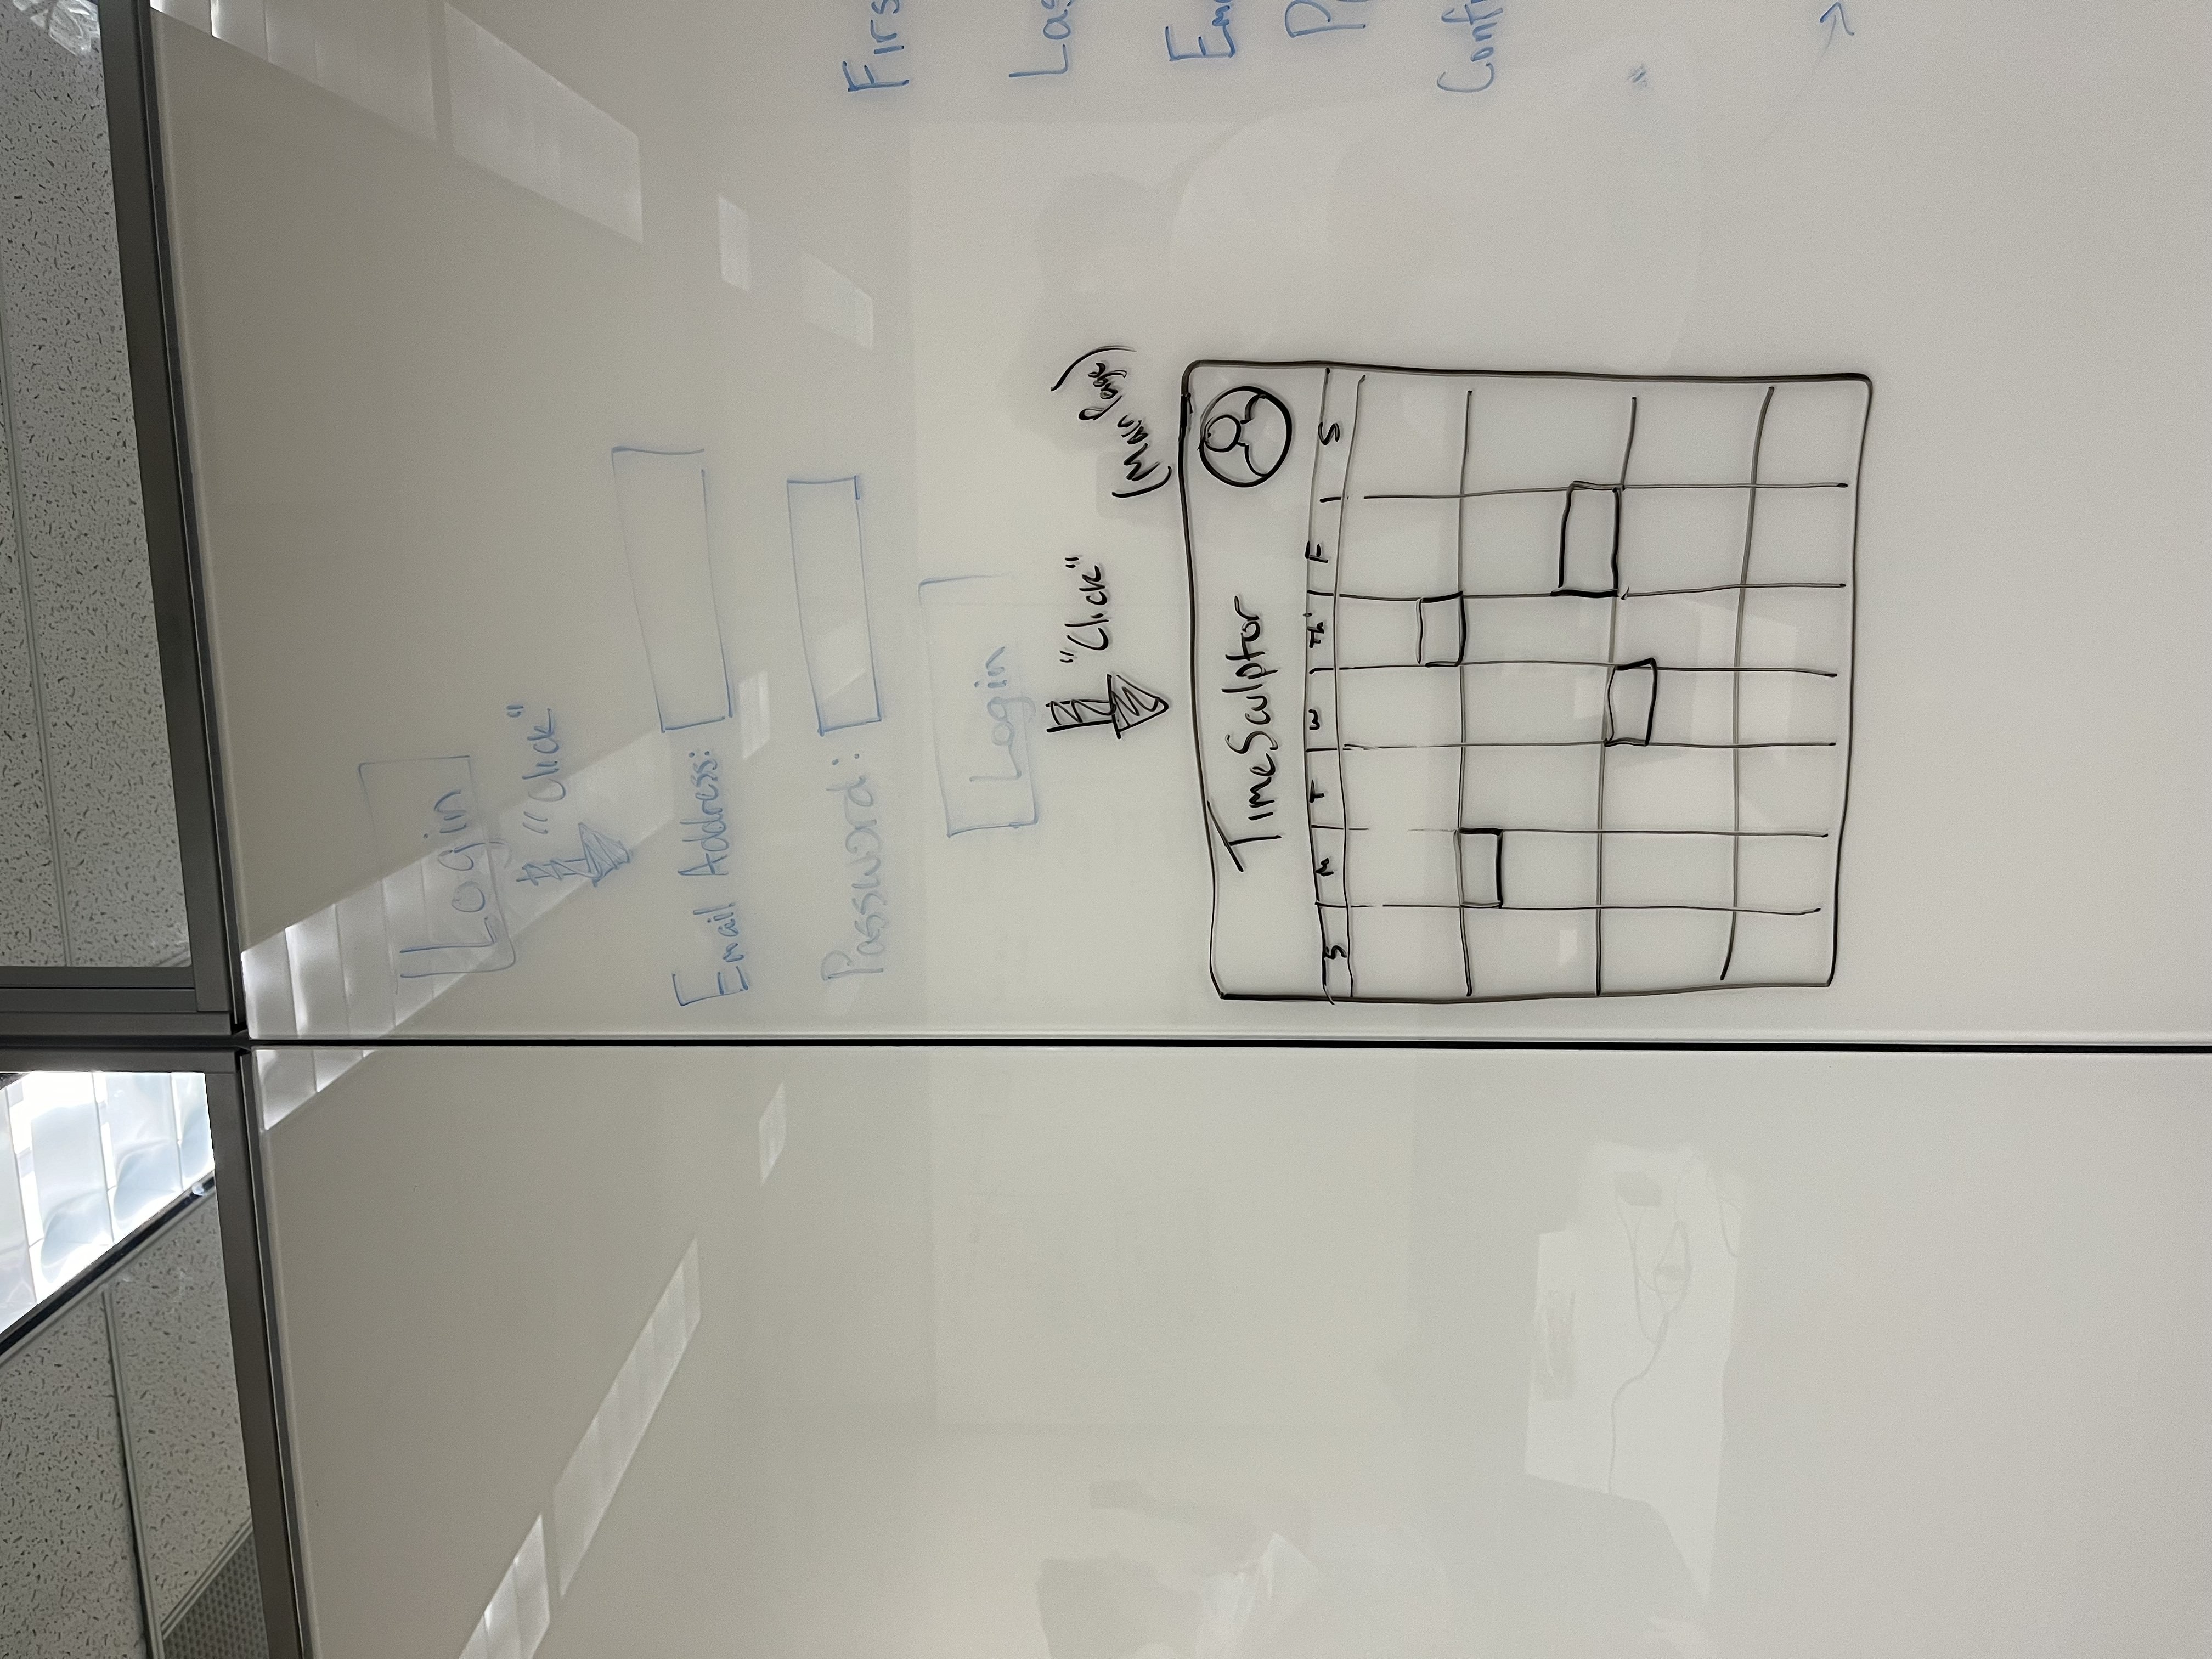 Login
"Click"
Email Address:
Password:
Login
"Click"
(Main Page)
TimeSculptor
S M T W Th F S
Firs
Las
Ema
P
Conf